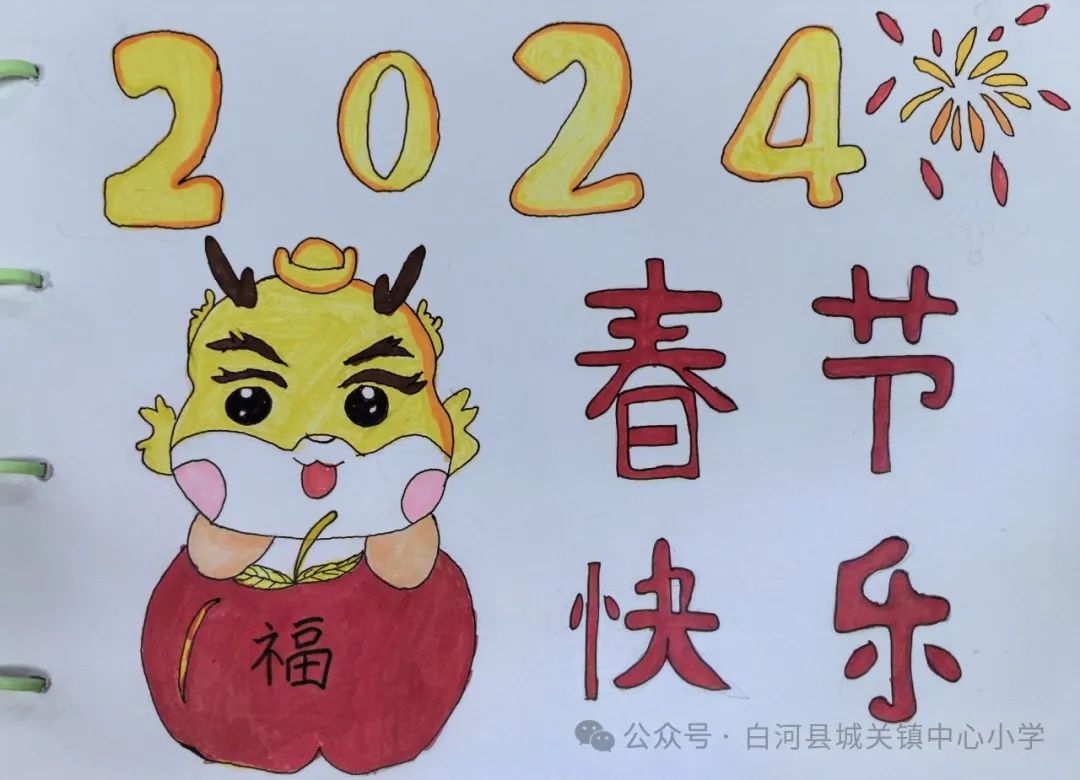 2024
春节
快乐
福
公众号·白河县城关镇中心小学